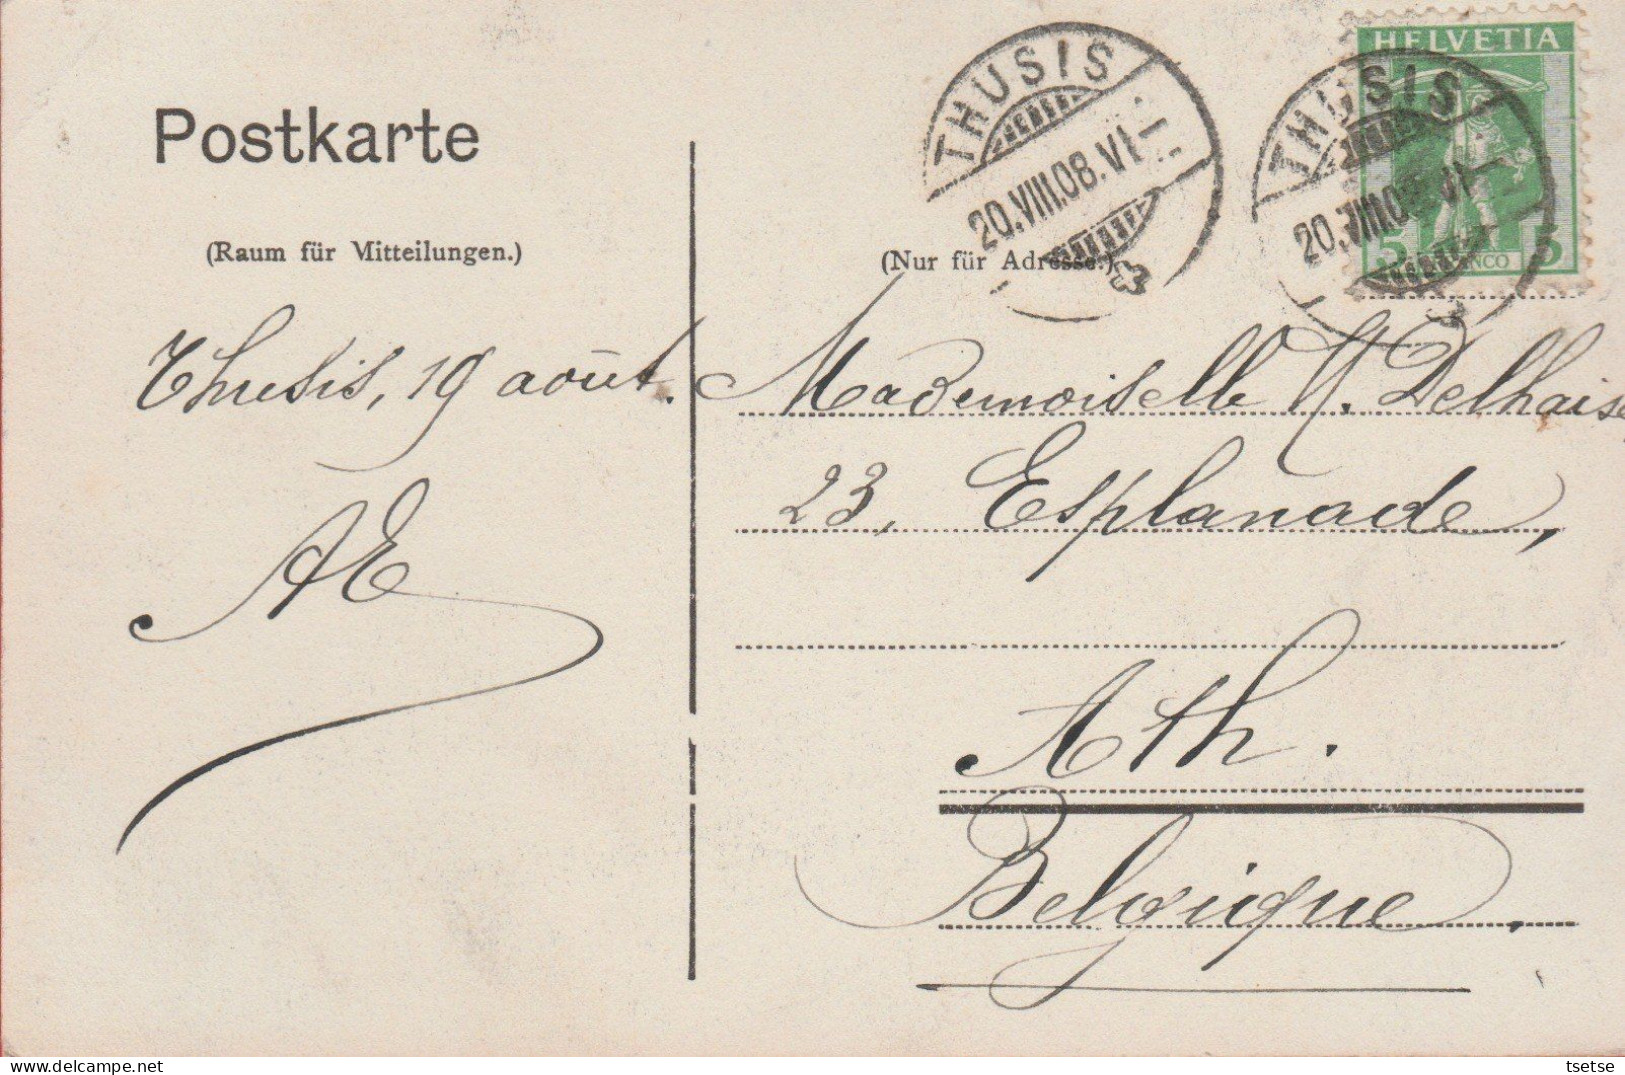 Postkarte
(Raum für Mitteilungen.)
(Nur für Adresse.)
THUSIS
20.VIII.08.VI
HELVETIA
5 5
THUSIS
20.VIII.08.VI
Thusis, 19 août.
AE
Mademoiselle M. Delhaise
23, Esplanade,
Ath.
Belgique,
tsetse